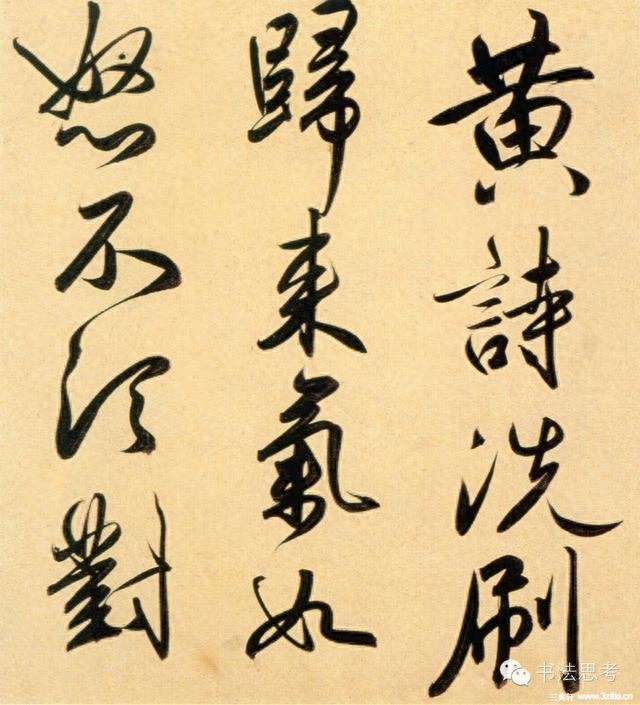 黄詩洗刷
歸來氣如
怒不須對
书法思考
www.3zitie.cn